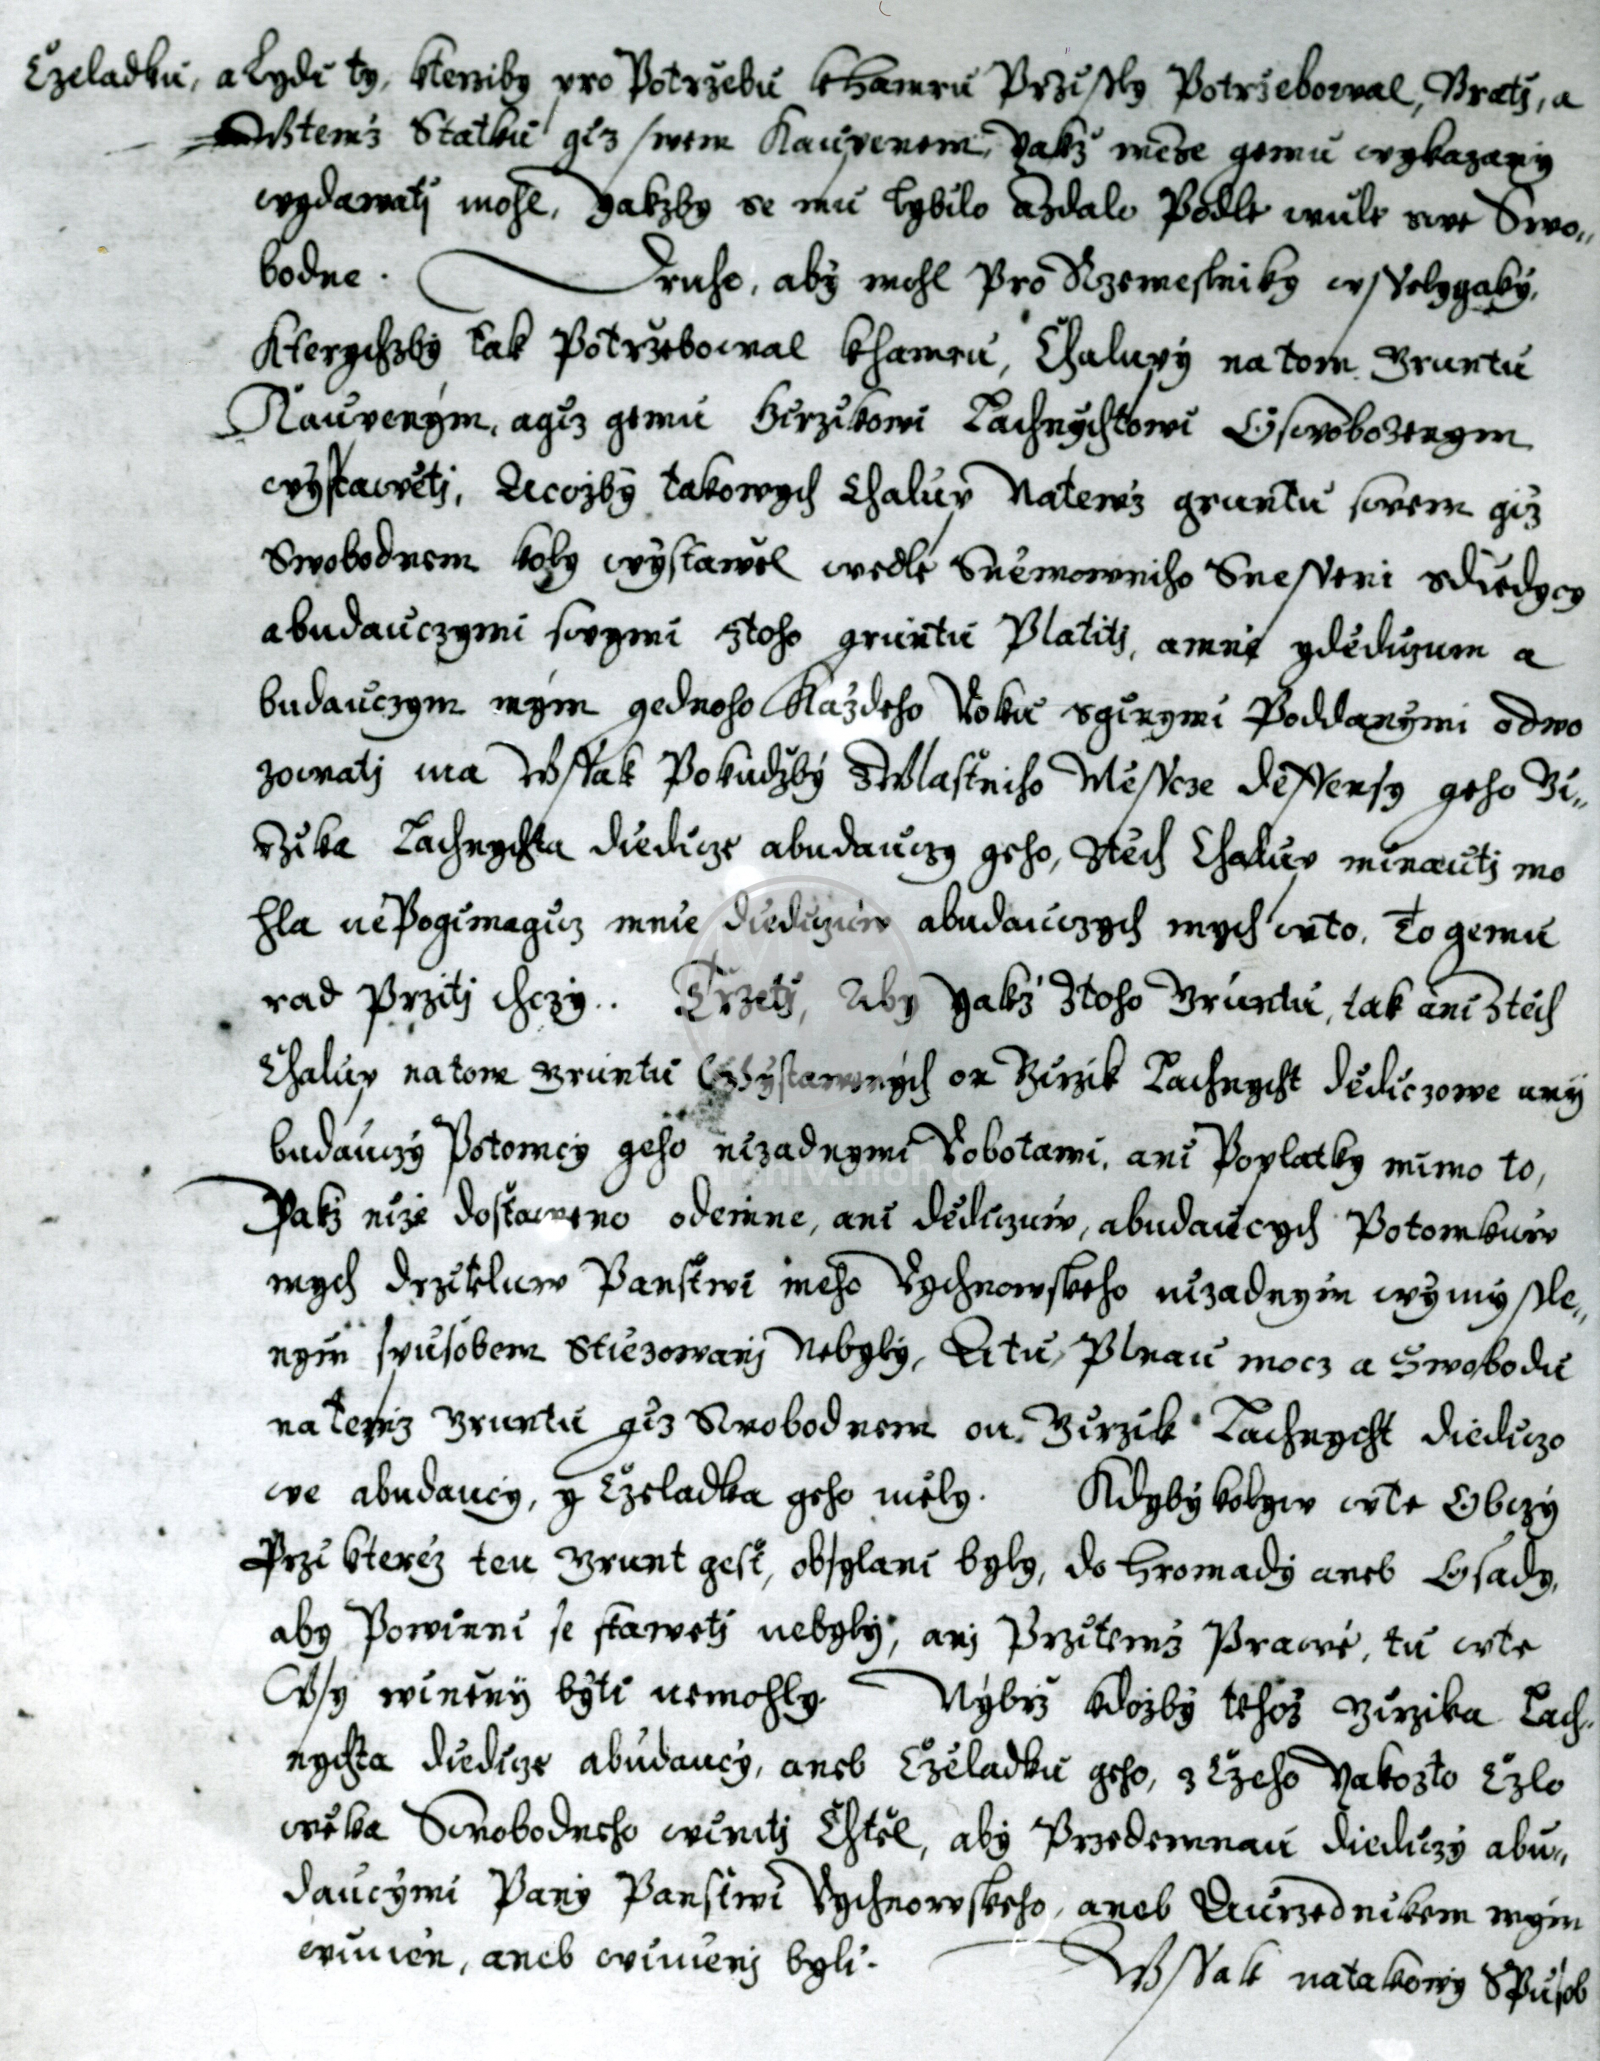 Czeladku, a Lydi ty, kterziby pro Potrzebu k Hamru Przissly Potrzebowal, Bratj, a
Wtemž Statku giž swem Kaupenem, Yakž wěze gemu wykazany
wydawatj mohl, Yakzby se mu lybilo a zdalo Podle wule swe Swo„
bodne. Druhe, aby mohl pro Rzemeslniky wsselygaky,
Kterychzby tak Potrzebowal khamru, Chalupy na tom Gruntu
Kaupenym, a giž gemu Girzikowi Tachnychtowi Oswobozenym
wystawětj, A cozby takowych Chalup Na temž gruntu swem giž
Swobodnem koly wystawěl wedle Sněmowniho Snesseni s dědicy
a budauczymi swymi z toho gruntu Platitj, a mně y dědiczum a
budauczym mym gednoho Každeho Roku s ginymi Poddanymi odwo
zowatj ma Wssak Pokudžby z Wlastniho Měsscze dessensy geho Gi„
rzika Tachnychta diedicze a budauczy geho, z těch Chalup minautj mo
hla ne Pogimagicz mnie diediczuw a budauczych mych w to. To gemu
rad przitj chczy.. Trzetj, Aby Yakž z toho Gruntu, tak ani z těch
Chalup na tom gruntu wystawenych on Girzik Tachnycht dědiczowe any
budauczy Potomcy geho nizadnymi Robotami, ani Poplatky mimo to,
Yakž niže dostaweno odemne, ani dědiczuw, a budaucych Potomkuw
mych drziteluw Panstwi meho Rychnowskeho nizadnym wymyssle„
nym spusobem stiezowanj Nebyly, A tu Plnau mocz a Swobodu
na temž Gruntu giž Swobodnem on Girzik Tachnycht diediczo
we a budaucy, y Czeladka geho měly. Kdyby kolyw w te Obczy
Przi kterež ten Grunt gest, obsylani byly, do Hromady aneb Osady,
aby Powinni se stawetj nebyly, anj Przitemž Prawě, tu w te
Wsy winěny býti nemohly. Nybrž kdožby tehož Girzika Tach„
nychta diedicze a budaucy, aneb Czeladku geho, z Czeho Yakozto Czlo
wěka Swobodneho winitj Chtěl, aby Przedemnau diediczy a bu„
daucymi Pany Panstwi Rychnowskeho, aneb Aurzednikem mym
winien, aneb winieni byli. Wssak na takowy Spusob